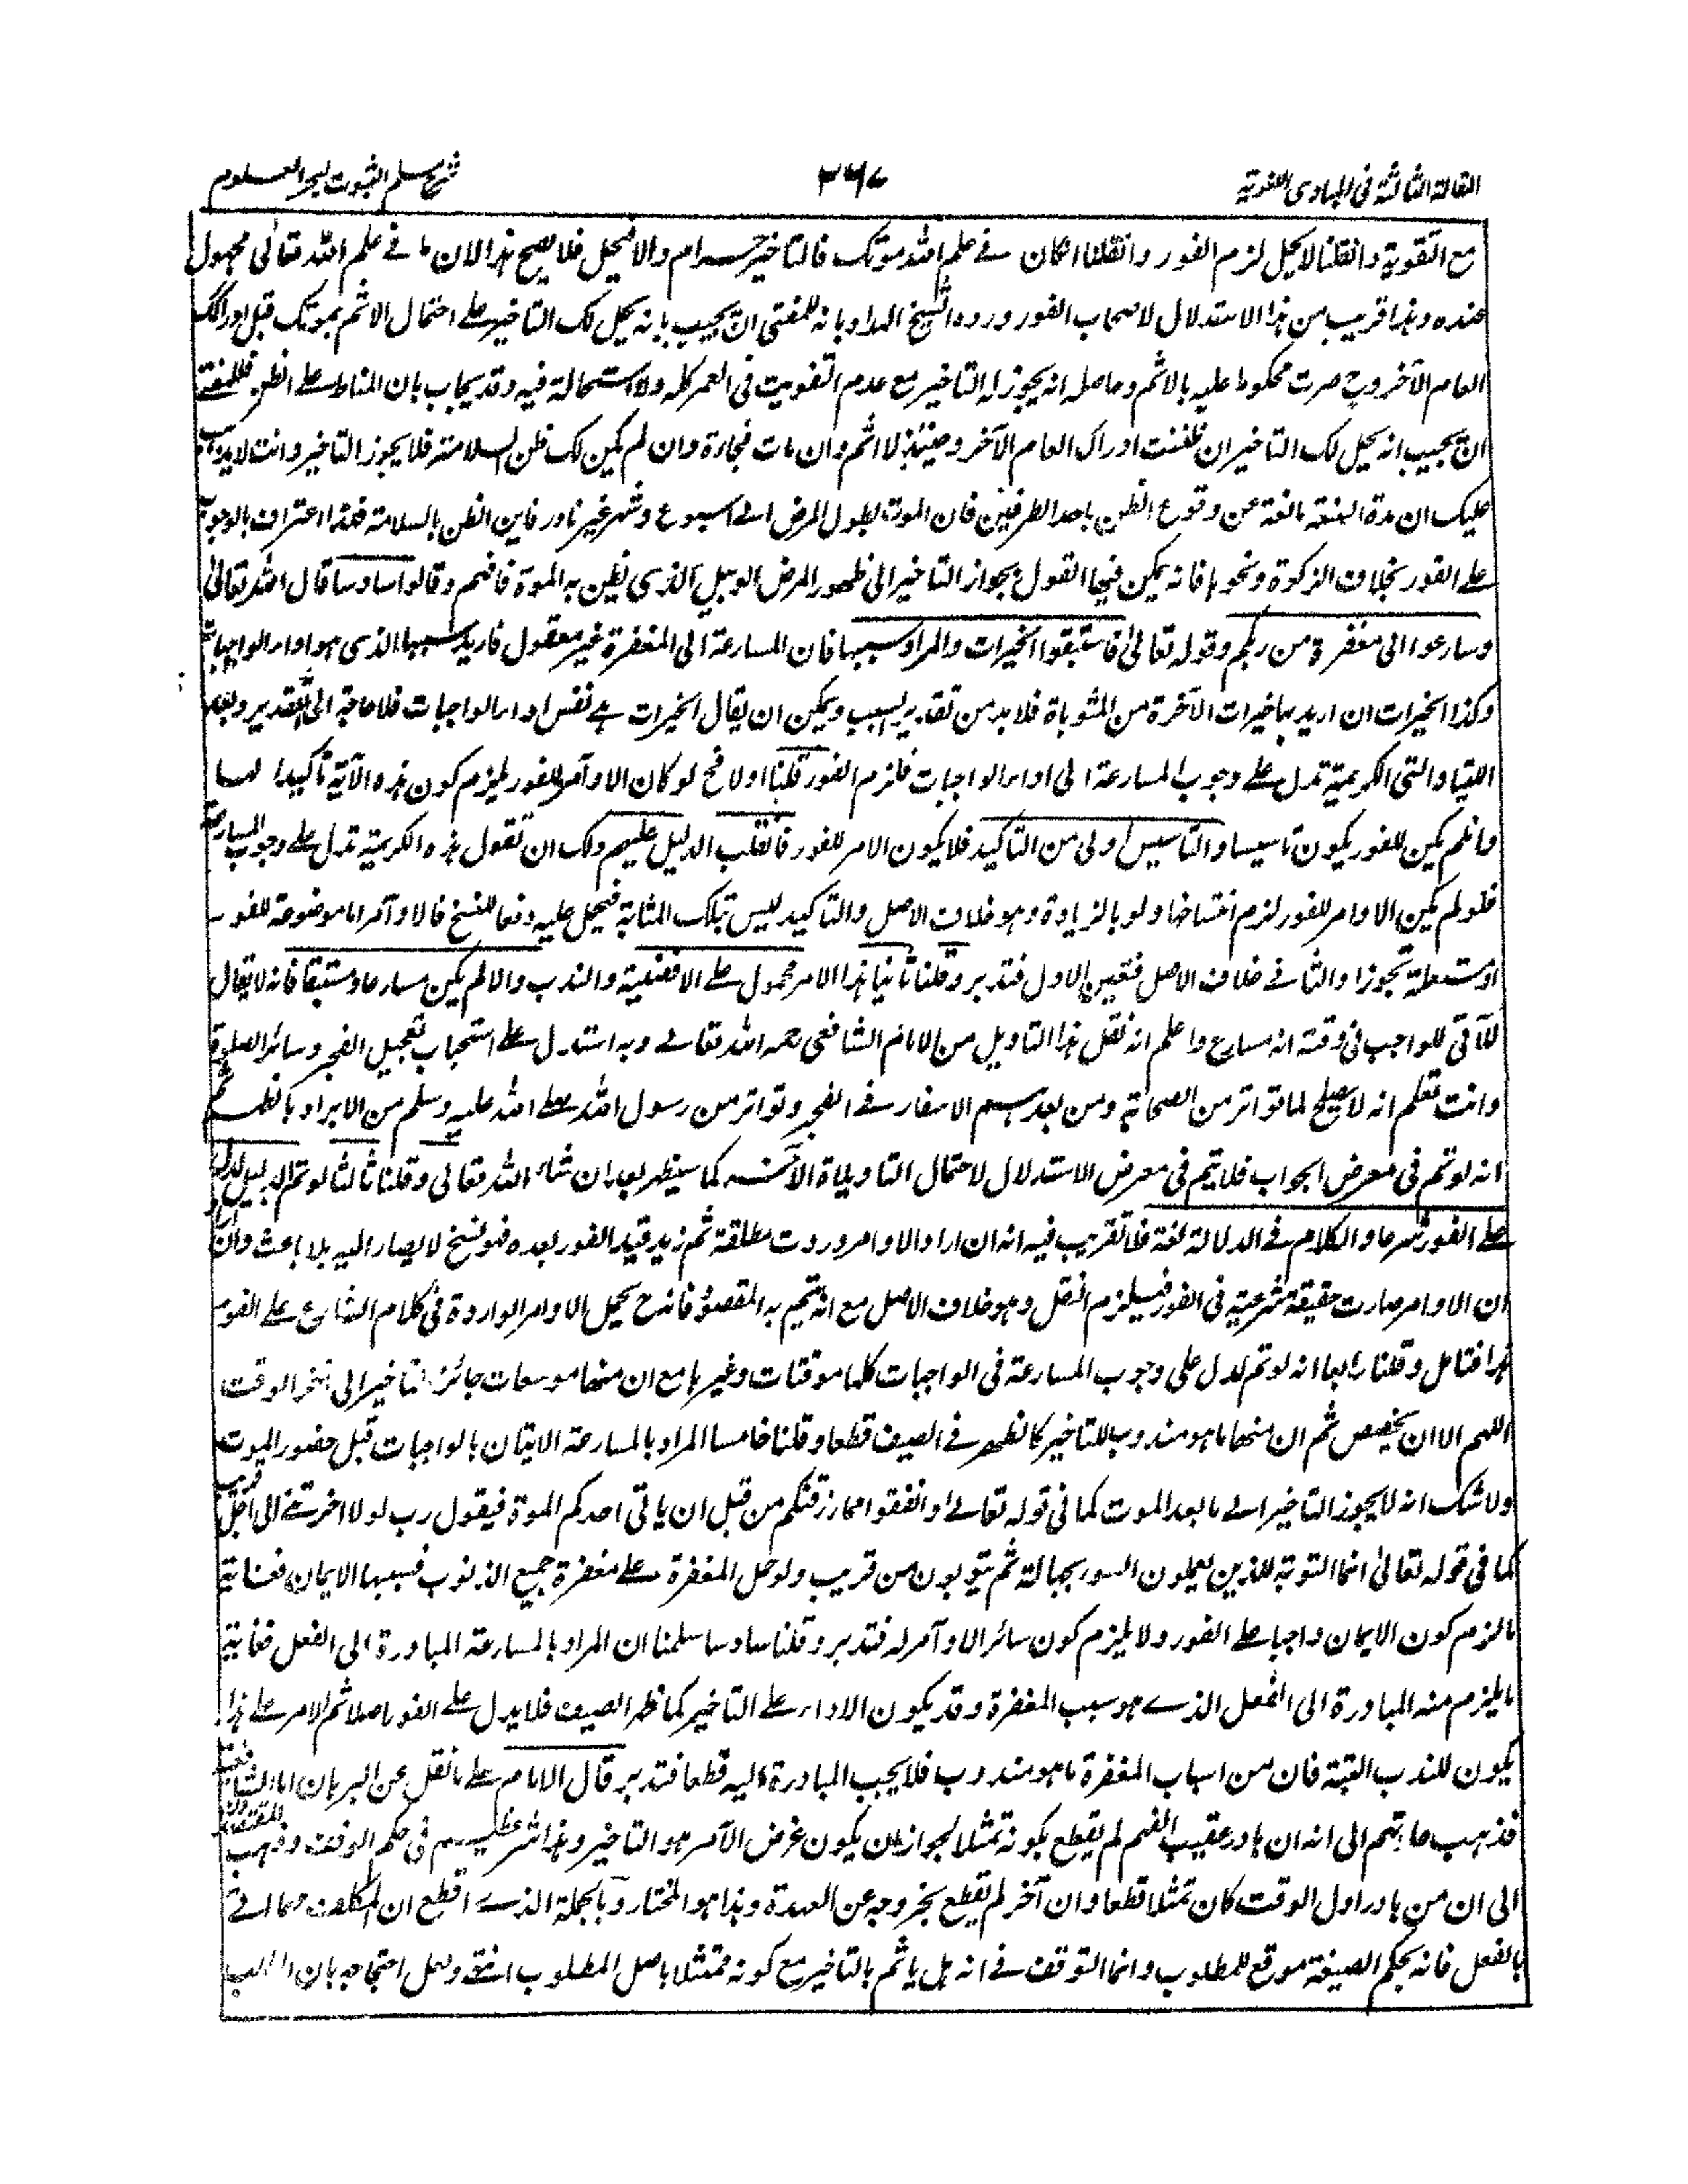 المقالة الثالثة في المبادى اللغوية
٣٦٧
شرح مسلم الثبوت لبحر العلوم
مع التقوية وان قلنا لا يحل لزم الفور وان قلنا ان كان في علم الله موتك فالتاخير حرام والا فيحل فلا يصح هذا لان ما في علم الله تعالى مجهول
عنده وهذا قريب من هذا الاستدلال لاصحاب الفور ورده الشيخ الهداد بانه للمفتى ان يجيب بانه يحل لك التاخير على احتمال الاثم بموتك قبل ادراك
العام الآخر وح صرت محكوما عليه بالاثم وحاصله انه يجوز له التاخير مع عدم التفويت فى العمر كله ولا استحالة فيه وقد يجاب بان المناط على الظن فللمفتى
ان يجيب انه يحل لك التاخير ان ظننت ادراك العام الآخر وحينئذ لا اثم وان مات فجاءة وان لم يكن لك ظن السلامة فلا يجوز التاخير وانت لا يذهب
عليك ان مدة السنة مانعة عن وقوع الظن باحد الطرفين فان الموت بطول المرض الى اسبوع وشهر غير نادر فاين الظن بالسلامة فهذا اعتراف بالوجوب
على الفور بخلاف الزكوة ونحوها فانه يمكن فيها القول بجواز التاخير الى ظهور المرض الوبيل الذى يظن به الموة فافهم وقالوا سادسا قال الله تعالى
وسارعوا الى مغفرة من ربكم وقوله تعالى فاستبقوا الخيرات والمراد سببها فان المسارعة الى المغفرة غير معقول فاريد سببها الذى هو اداء الواجبات
وكذا الخيرات ان اريد بها خيرات الآخرة من المثوباة فلابد من تقدير السبب ويمكن ان يقال الخيرات هى نفس اداء الواجبات فلا حاجة الى التقدير وبعد
اللتيا والتى الكريمة تدل على وجوب المسارعة الى اداء الواجبات فلزم الفور قلنا اولا فح لو كان الاوامر للفور يلزم كون هذه الآية تاكيدا لها
وان لم يكن للفور يكون تاسيسا والتاسيس اولى من التاكيد فلا يكون الامر للفور فانقلب الدليل عليهم ولك ان تقول هذه الكريمة تدل على وجوب المسارعة
فلو لم يكن الاوامر للفور لزم انتساخها ولو بالزيادة وهو خلاف الاصل والتاكيد ليس بتلك المثابة فيحمل عليه دفعا للنسخ فالاوامر اما موضوعة للفور
او مستعملة تجوزا والثانى خلاف الاصل فتعين الاول فتدبر وقلنا ثانيا هذا الامر محمول على الافضلية والندب والا لم يكن مسارعا ومستبقا فانه لا يقال
للآتى للواجب فى وقته انه مسارع واعلم انه نقل هذا التاويل من الامام الشافعى رحمه الله تعالى وبه استدل على استحباب تعجيل الفجر وسائر الصلوة
وانت تعلم انه لا يصلح لما تواتر من الصحابة ومن بعدهم الاسفار فى الفجر وتواتر من رسول الله صلى الله عليه وسلم من الابراد بالظهر ثم
انه لو تم فى معرض الجواب فلا يتم فى معرض الاستدلال لاحتمال التاويلاة الأخر كما سيظهر بعد ان شاء الله تعالى وقلنا ثالثا لو تم الدليل لدل
على الفور شرعا والكلام فى الدلالة لغة فلا تقريب فيه انه ان اراد الاوامر وردت مطلقة ثم زيد قيد الفور بعده فهو نسخ لا يصار اليه بلا باعث وان اراد
ان الاوامر صارت حقيقة شرعية فى الفور فيلزم النقل وهو خلاف الاصل مع انه يتم به المقصود فانه ح يحمل الاوامر الواردة فى كلام الشارع على الفور
هذا فتامل وقلنا رابعا انه لو تم لدل على وجوب المسارعة فى الواجبات كلها موقتات وغيرها مع ان منها موسعات جائز التاخير الى آخر الوقت
اللهم الا ان يخصص ثم ان منها ما هو مندوب للتاخير كالظهر فى الصيف قطعا وقلنا خامسا المراد بالمسارعة الاتيان بالواجبات قبل حضور الموت
ولا شك انه لا يجوز التاخير الى ما بعد الموت كما فى قوله تعالى وانفقوا مما رزقنكم من قبل ان ياتى احدكم الموة فيقول رب لولا اخرتنى الى اجل قريب
كما فى قوله تعالى انما التوبة للذين يعملون السوء بجهالة ثم يتوبون من قريب ولو حمل المغفرة على مغفرة جميع الذنوب فسببها الايمان فغاية
ما لزم كون الايمان واجبا على الفور ولا يلزم كون سائر الاوامر له فتدبر وقلنا سادسا سلمنا ان المراد بالمسارعة المبادرة الى الفعل فغاية
ما يلزم منه المبادرة الى الفعل الذى هو سبب المغفرة وقد يكون الاداء على التاخير كما ظهر الصيف فلا يدل على الفور اصلا ثم الامر على هذا
يكون للندب البتة فان من اسباب المغفرة ما هو مندوب فلا يجب المبادرة اليه قطعا فتدبر قال الامام على ما نقل عن البرهان اما
فذهب جماعتهم الى انه ان بادر عقيب الفهم لم يقطع بكونه ممتثلا لجواز ان يكون غرض الآمر هو التاخير وهذا شر عظيم فى حكم الوقف وذهب المقتصدون
الى ان من بادر اول الوقت كان ممتثلا قطعا وان آخر لم يقطع بخروجه عن العهدة وهذا هو المختار وبالجملة الذى اقطع ان المكلف مهما اتى
بالفعل فانه بحكم الصيغة موقع للمطلوب وانما التوقف فى انه هل ياثم بالتاخير مع كونه ممتثلا باصل المطلوب انتهى ولعل احتجاجه بان الطلب